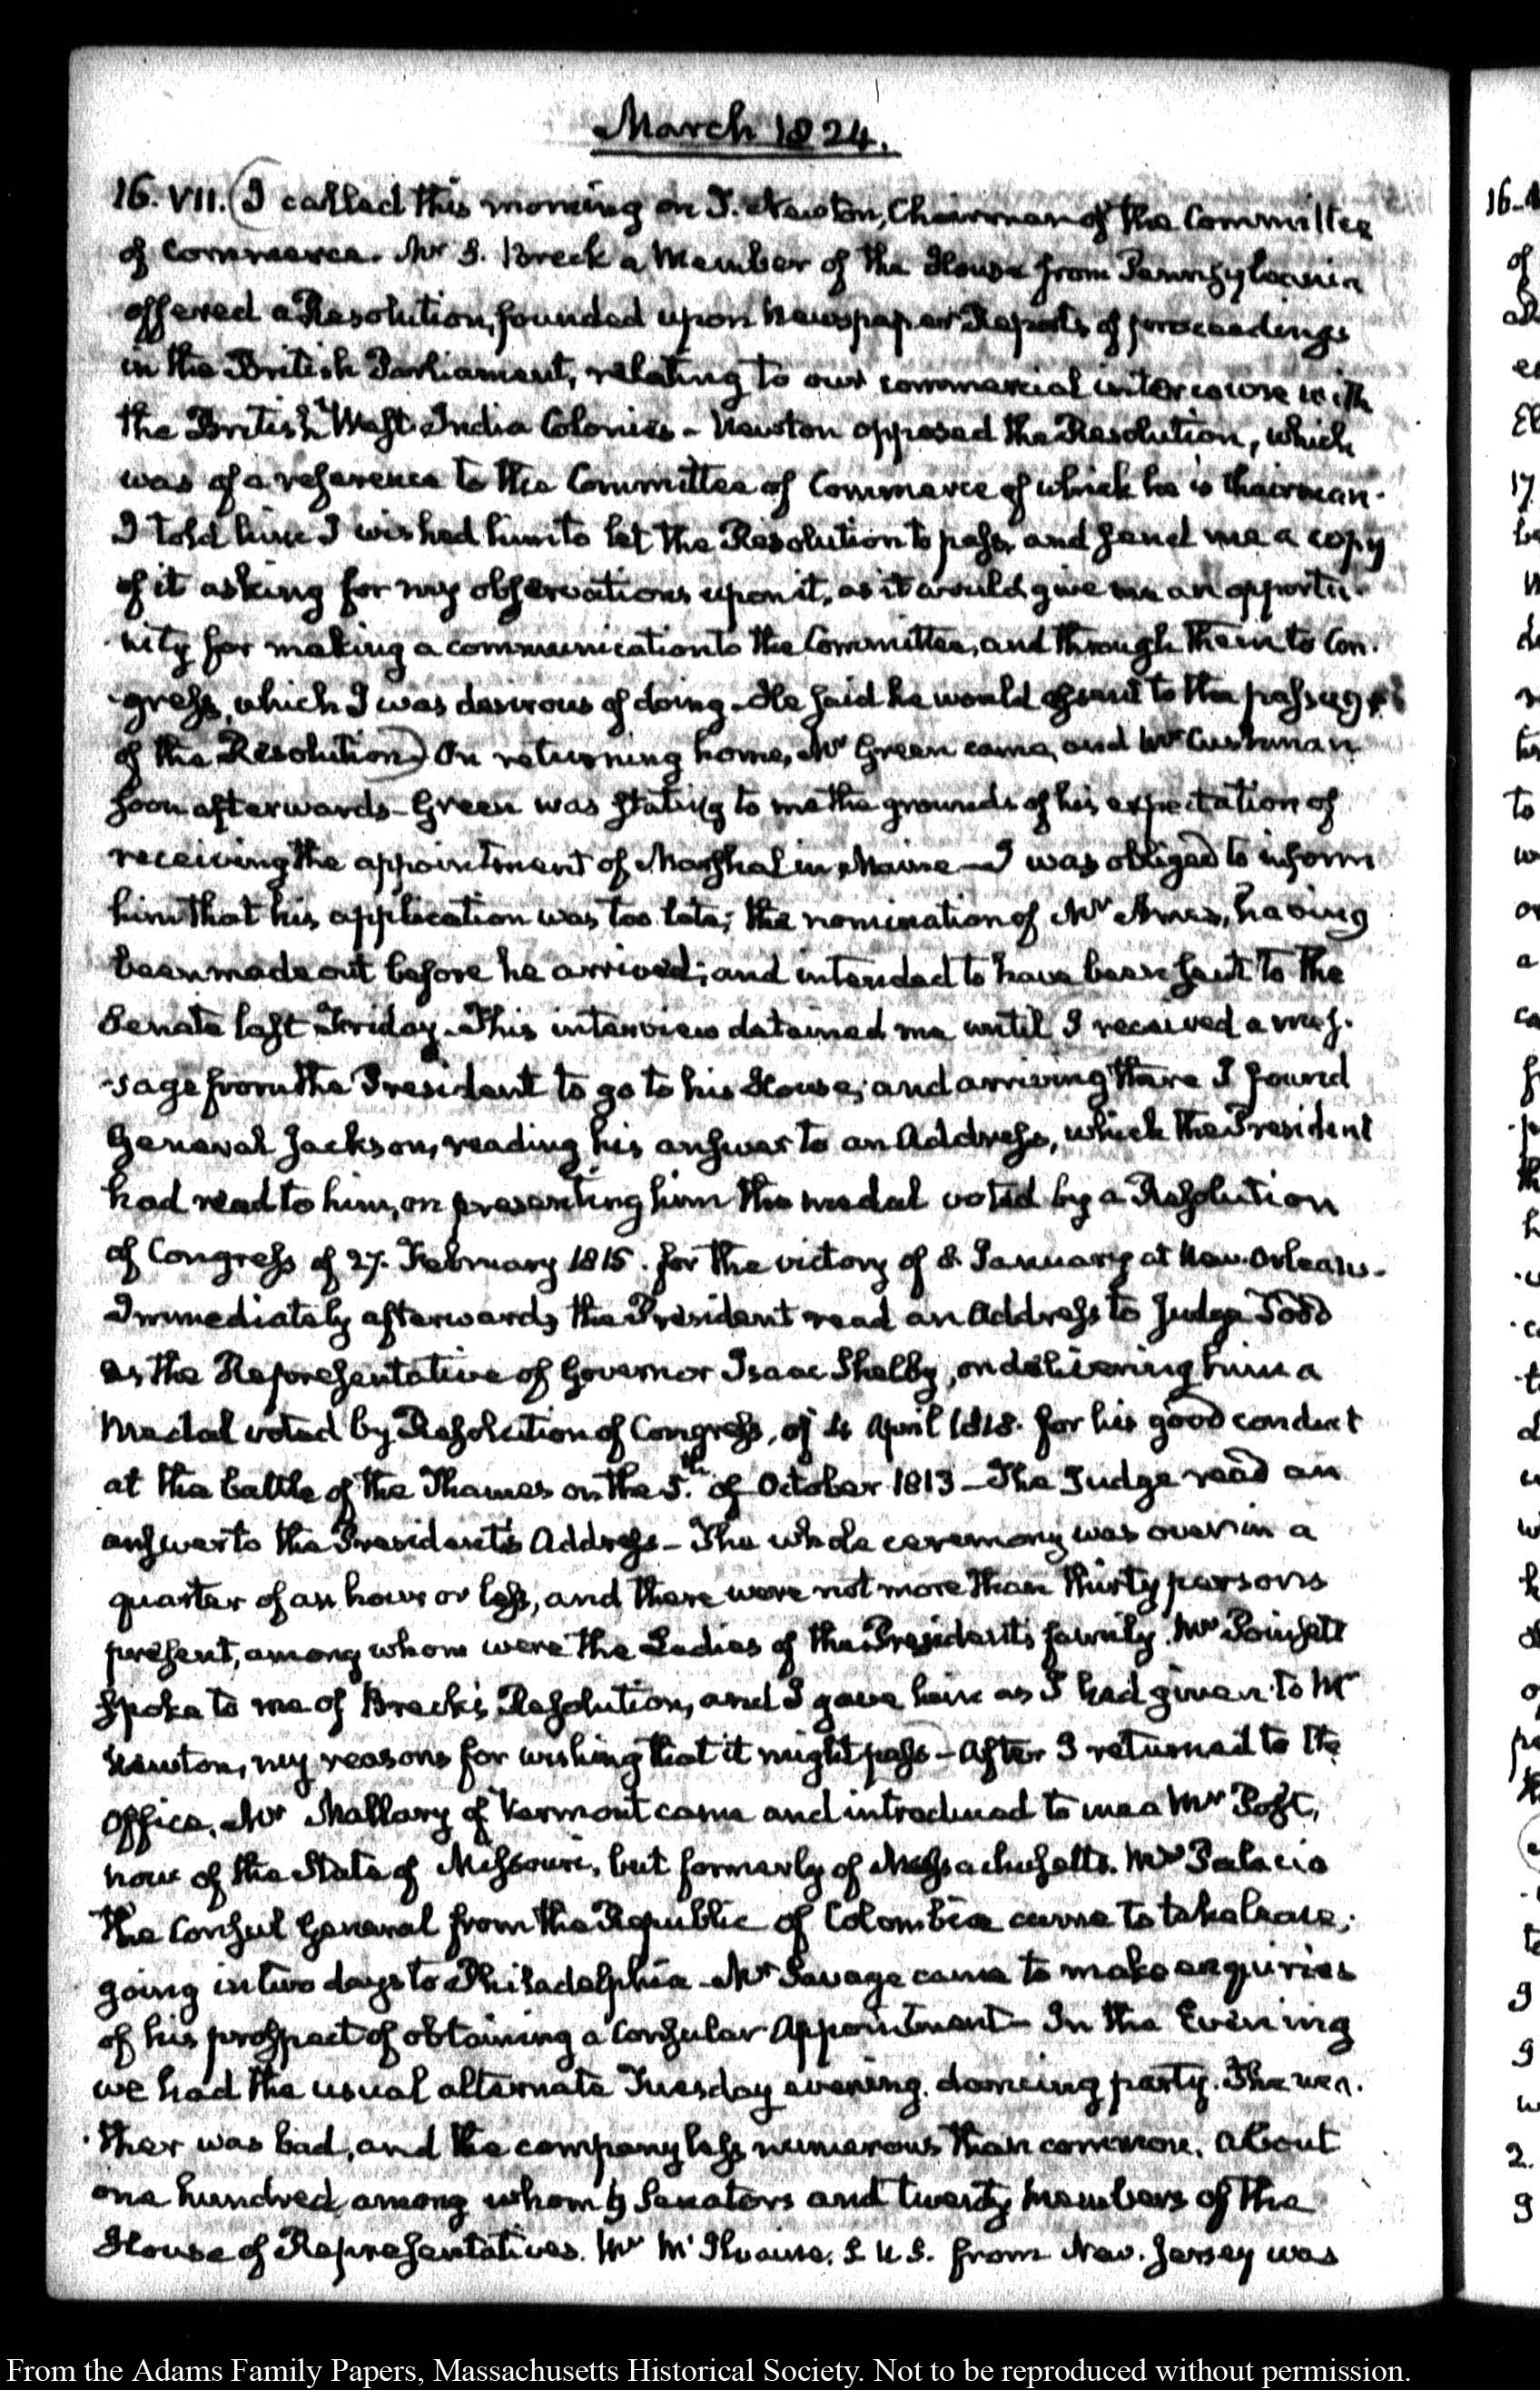 March 1824.
16. VII. (I called this morning on T. Newton, Chairman of the Committee
of Commerce. Mr S. Breck a Member of the House from Pennsylvania
offered a Resolution, founded upon Newspaper Reports of proceedings
in the British Parliament, relating to our commercial intercourse with
the British West-India Colonies - Newton opposed the Resolution, which
was of a reference to the Committee of Commerce of which he is Chairman.
I told him I wished him to let the Resolution to pass, and send me a copy
of it asking for my observations upon it, as it would give me an opportu-
-nity for making a communication to the Committee, and through them to Con-
-gress, which I was desirous of doing - He said he would assent to the passage
of the Resolution) On returning home, Mr Green came, and Mr Cushman
soon afterwards - Green was stating to me the grounds of his expectation of
receiving the appointment of Marshal in Maine - I was obliged to inform
him that his application was too late; the nomination of Mr Ames, having
been made out before he arrived; and intended to have been sent to the
Senate last Friday - This interview detained me until I received a mes-
-sage from the President to go to his House; and arriving there I found
General Jackson, reading his answer to an Address, which the President
had read to him, on presenting him the medal voted by a Resolution
of Congress of 27. February 1815. for the victory of 8. January at New-Orleans.
Immediately afterwards the President read an Address to Judge Todd
as the Representative of Governor Isaac Shelby, on delivering him a
Medal voted by Resolution of Congress, of 4 April 1818. for his good conduct
at the battle of the Thames on the 5th. of October 1813 - The Judge read an
answer to the President's Address - The whole ceremony was over in a
quarter of an hour or less, and there were not more than thirty persons
present, among whom were the Ladies of the President's family. Mr Poinsett
spoke to me of Breck's Resolution, and I gave him as I had given to Mr
Newton, my reasons for wishing that it might pass - After I returned to the
Office, Mr Mallary of Vermont came and introduced to me a Mr Post,
now of the State of Missouri, but formerly of Massachusetts. Mr Palacio
the Consul General from the Republic of Colombia came to take leave;
going in two days to Philadelphia - Mr Savage came to make enquiries
of his prospect of obtaining a Consular Appointment - In the Evening
we had the usual alternate Tuesday evening dancing party. The wea-
-ther was bad, and the company less numerous than common. About
one hundred, among whom 9 Senators and twenty Members of the
House of Representatives. Mr McIlvaine. S. U.S. from New-Jersey was
From the Adams Family Papers, Massachusetts Historical Society. Not to be reproduced without permission.